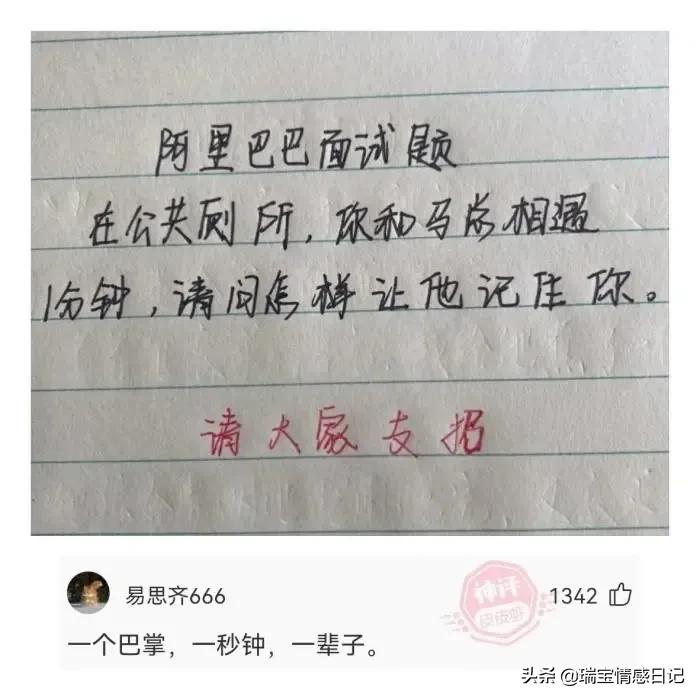 阿里巴巴面试题
在公共厕所，你和马总相遇
1分钟，请问怎样让他记住你。
请大家支招
易思齐666
神评
皮皮虾
1342
一个巴掌，一秒钟，一辈子。
头条 @瑞宝情感日记